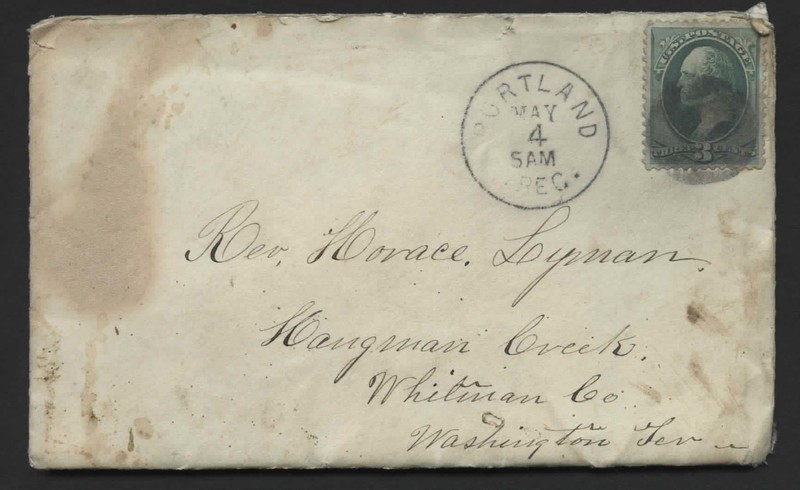 U.S. POSTAGE
THREE 3 CENTS
PORTLAND
MAY
4
5AM
OREG.
Rev. Horace. Lyman.
Hangman Creek.
Whitman Co
Washington Ter